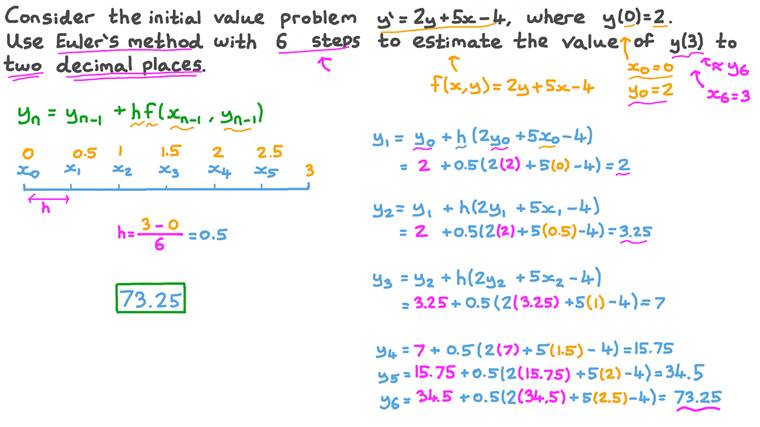 Consider the initial value problem y' = 2y + 5x - 4, where y(0) = 2.
Use Euler's method with 6 steps to estimate the value of y(3) to
two decimal places.
≈ y₆
x₀ = 0
y₀ = 2
x₆ = 3
f(x, y) = 2y + 5x - 4
yₙ = yₙ₋₁ + hf(xₙ₋₁, yₙ₋₁)
0 0.5 1 1.5 2 2.5
x₀ x₁ x₂ x₃ x₄ x₅ 3
h
h = (3 - 0)/6 = 0.5
73.25
y₁ = y₀ + h(2y₀ + 5x₀ - 4)
= 2 + 0.5(2(2) + 5(0) - 4) = 2
y₂ = y₁ + h(2y₁ + 5x₁ - 4)
= 2 + 0.5(2(2) + 5(0.5) - 4) = 3.25
y₃ = y₂ + h(2y₂ + 5x₂ - 4)
= 3.25 + 0.5(2(3.25) + 5(1) - 4) = 7
y₄ = 7 + 0.5(2(7) + 5(1.5) - 4) = 15.75
y₅ = 15.75 + 0.5(2(15.75) + 5(2) - 4) = 34.5
y₆ = 34.5 + 0.5(2(34.5) + 5(2.5) - 4) = 73.25